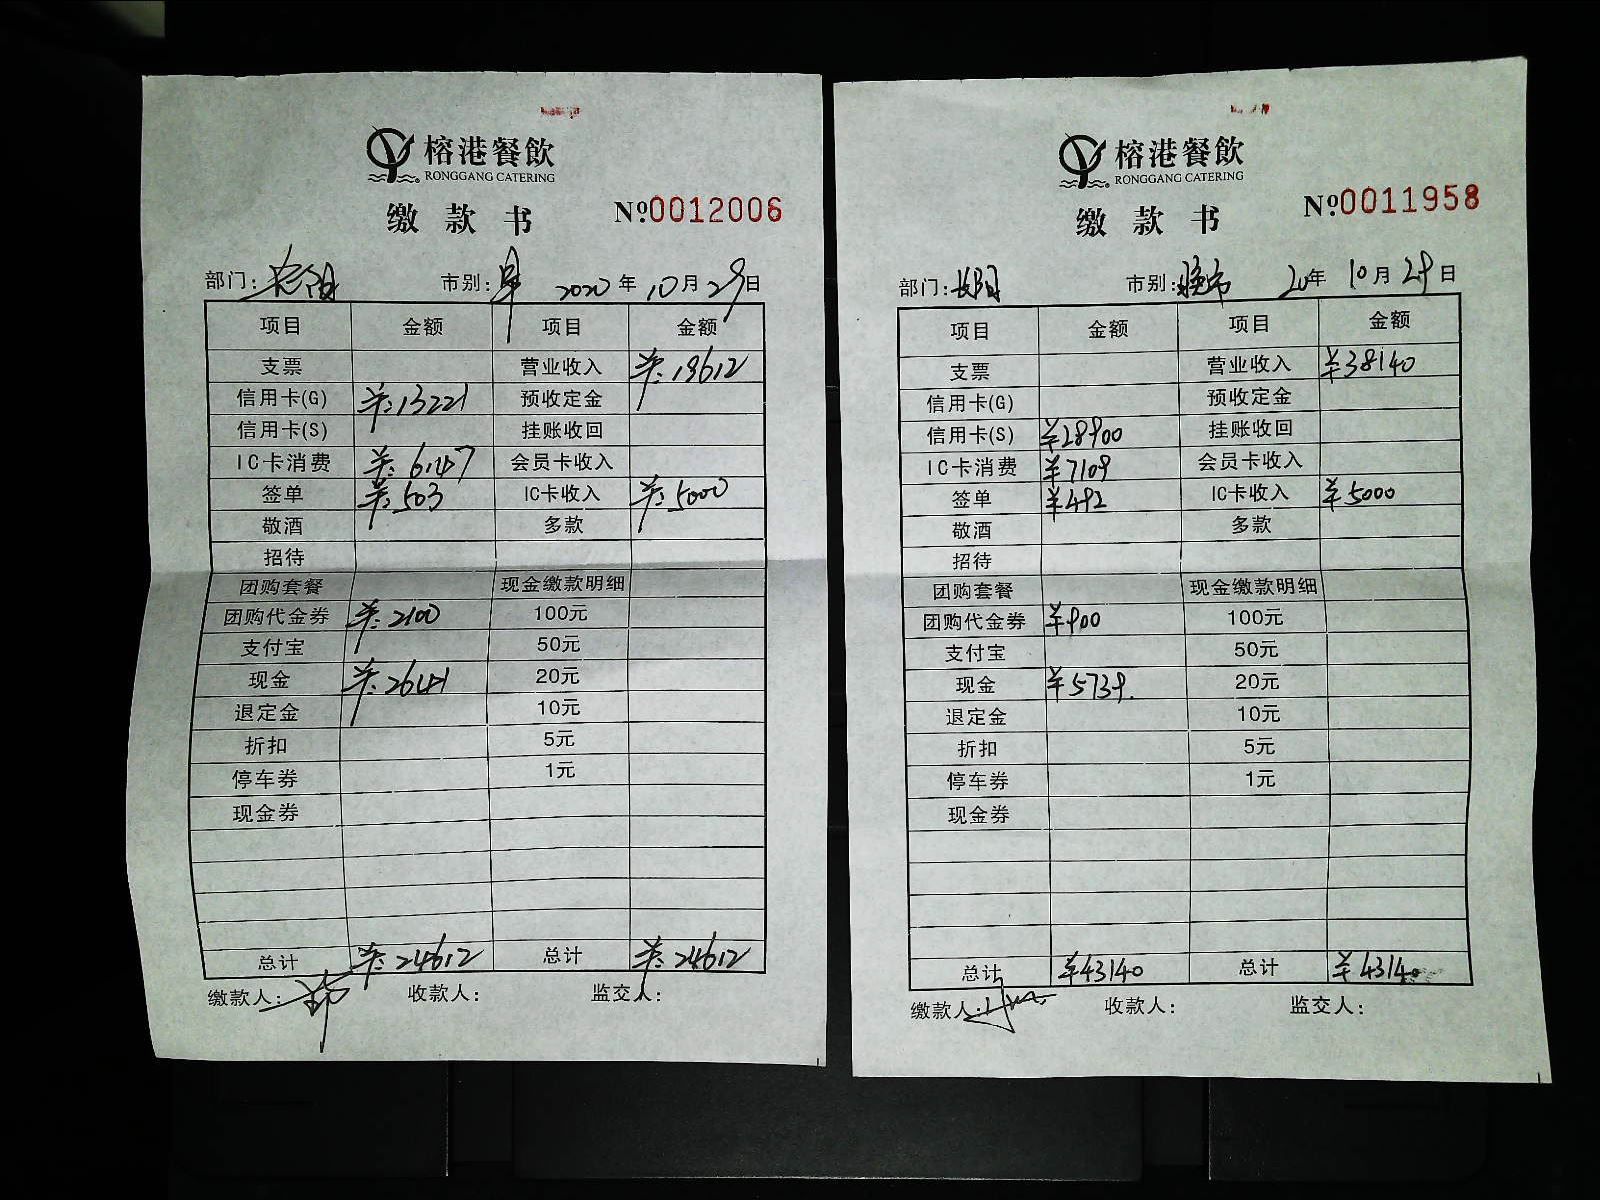 榕港餐飲
RONGGANG CATERING
缴款书 №0012006
部门: 市别: 早 2020年10月29日
项目 金额 项目 金额
支票 营业收入 ¥:19612
信用卡(G) ¥:13221 预收定金
信用卡(S) 挂账收回
IC卡消费 ¥:6147 会员卡收入
签单 ¥:503 IC卡收入 ¥:5000
敬酒 多款
招待
团购套餐 现金缴款明细
团购代金券 ¥:2100 100元
支付宝 50元
现金 ¥:2641 20元
退定金 10元
折扣 5元
停车券 1元
现金券
总计 ¥:24612 总计 ¥:24612
缴款人: 收款人: 监交人:
榕港餐飲
RONGGANG CATERING
缴款书 №0011958
部门: 市别:晚市 20年10月29日
项目 金额 项目 金额
支票 营业收入 ¥38140
信用卡(G) 预收定金
信用卡(S) ¥28900 挂账收回
IC卡消费 ¥7109 会员卡收入
签单 ¥492 IC卡收入 ¥5000
敬酒 多款
招待
团购套餐 现金缴款明细
团购代金券 ¥900 100元
支付宝 50元
现金 ¥5739. 20元
退定金 10元
折扣 5元
停车券 1元
现金券
总计 ¥43140 总计 ¥43140
缴款人: 收款人: 监交人: